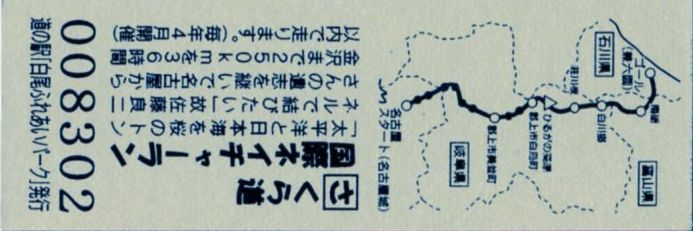 さくら道
国際ネイチャーラン
「太平洋と日本海を桜のトン
ネルで結びたい」故佐藤良二
さんの遺志を継いで名古屋から
金沢まで250kmを36時間
以内で走ります。(毎年4月開催)
008302
道の駅「白尾ふれあいパーク」発行
石川県
ゴール
(兼六園)
福光
富山県
白川郷
荘川桜
ひるがの高原
郡上市白鳥町
郡上市美並町
岐阜県
名古屋
スタート(名古屋城)